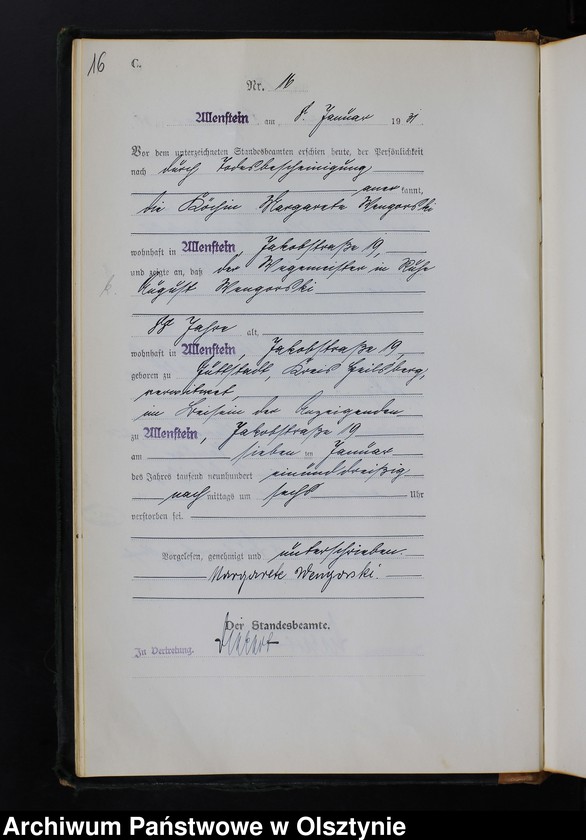 16
C.
Nr. 16
Allenstein am 8. Januar 1931
Vor dem unterzeichneten Standesbeamten erschien heute, der Persönlichkeit
nach durch Todesbescheinigung
anerkannt,
die Köchin Margarete Wengorski
wohnhaft in Allenstein, Jakobstraße 19,
und zeigte an, daß der Wegemeister in Ruhe
August Wengorski
Jahre alt,
wohnhaft in Allenstein, Jakobstraße 19,
geboren zu Guttstadt, Kreis Heilsberg,
verwitwet,
im Beisein der Anzeigenden
zu Allenstein, Jakobstraße 19
am sieben ten Januar
des Jahres tausend neunhundert einunddreißig
nach mittags um sechs Uhr
verstorben sei.
Vorgelesen, genehmigt und unterschrieben.
Margarete Wengorski.
Der Standesbeamte.
In Vertretung.
Archiwum Państwowe w Olsztynie